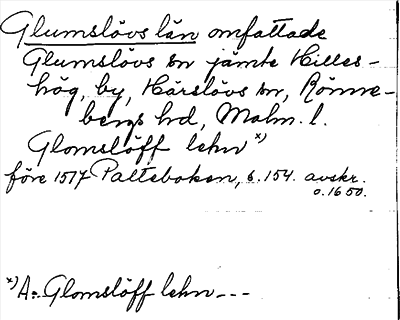 Glumslövs län omfattade
Glumslövs sn jämte Hilles-
hög, by, Härslövs sn, Rönne-
bergs hd, Malm. l.
Glomslöff lehn x)
före 1517 Palteboken, s. 154. avskr.
o. 1650.
x) A: Glomslöff lehn---